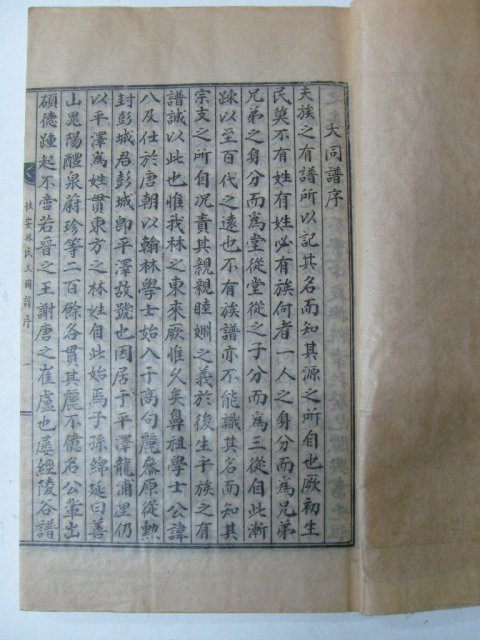 大同譜序
夫族之有譜所以記其名而知其源之所自也厥初生
民莫不有姓有姓必有族何者一人之身分而爲兄弟
兄弟之身分而爲堂從堂從之子分而爲三從自此漸
踈以至百代之遠也不有族譜亦不能識其名而知其
宗支之所自况責其親親睦婣之義於後生乎族之有
譜誠以此也惟我林之東來厥惟久矣鼻祖學士公諱
八及仕於唐朝以翰林學士始入于高句麗叅原從勲
封彭城君彭城卽平澤故號也因居于平澤龍浦里仍
以平澤爲姓貫東方之林姓自此始焉子孫綿延曰善
山嵬陽醴泉蔚珍等二百餘各貫其麗不億名公輩出
碩德踵起不啻若晋之王謝唐之崔盧也屡經陵谷譜
扶安林氏大同譜序
一